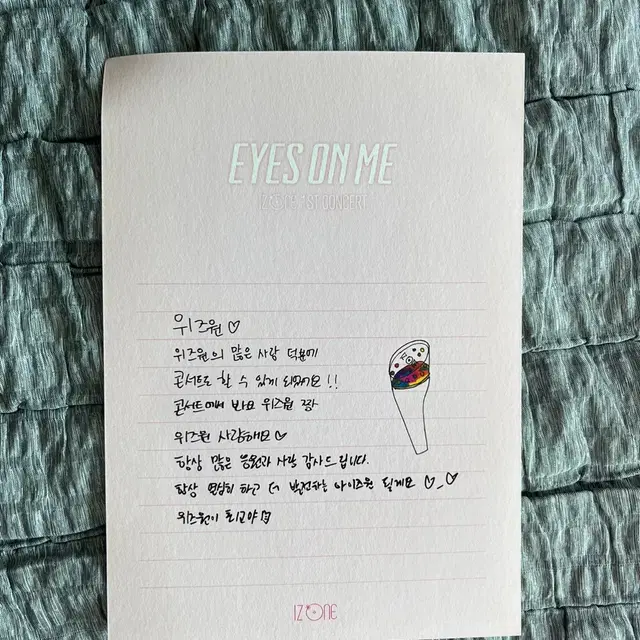 EYES ON ME
IZ*ONE 1ST CONCERT
위즈원♡
위즈원의 많은 사랑 덕분에
콘서트도 할 수 있게 되었어요!!
콘서트에서 봐요 위즈원 짱
위즈원 사랑해요♡
항상 많은 응원과 사랑 감사드립니다.
항상 열심히 하고 더 발전하는 아이즈원 될게요 ♡_♡
위즈원이 최고야
IZ*ONE